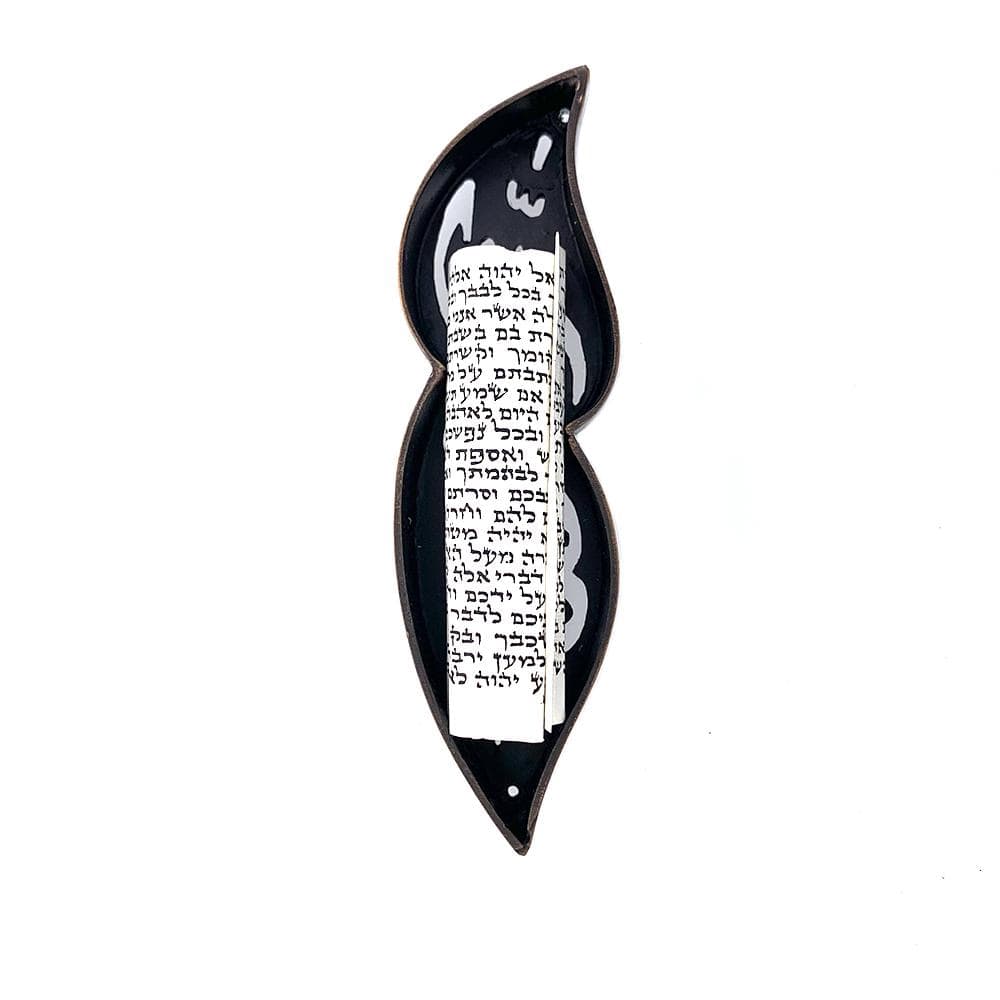 אל יהוה אלה
בכל לבבך וב
לה אשר אנכי
רת בם בשבת
ומך וקשרת
תבתם על מ
אם שמע ת
היום לאהבה
ובכל נפשכם
ש ואספת
לבהמתך וא
בכם וסרתם
להם וחרה
א יהיה מטר
רה מעל הא
דברי אלה
על ידכם וה
יכם לדבר
כבך ובק
למען ירב
ע יהוה לא